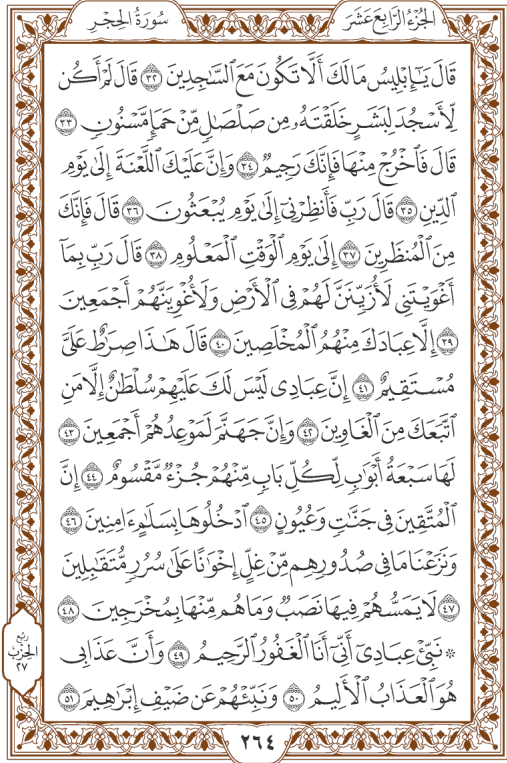 الجُزْءُ الرَّابِعَ عَشَرَ
سُورَةُ الحِجْرِ
قَالَ يَٰٓإِبْلِيسُ مَا لَكَ أَلَّا تَكُونَ مَعَ ٱلسَّٰجِدِينَ ٣٢ قَالَ لَمْ أَكُن
لِّأَسْجُدَ لِبَشَرٍ خَلَقْتَهُۥ مِن صَلْصَٰلٍ مِّنْ حَمَإٍ مَّسْنُونٍ ٣٣
قَالَ فَٱخْرُجْ مِنْهَا فَإِنَّكَ رَجِيمٌ ٣٤ وَإِنَّ عَلَيْكَ ٱللَّعْنَةَ إِلَىٰ يَوْمِ
ٱلدِّينِ ٣٥ قَالَ رَبِّ فَأَنظِرْنِىٓ إِلَىٰ يَوْمِ يُبْعَثُونَ ٣٦ قَالَ فَإِنَّكَ
مِنَ ٱلْمُنظَرِينَ ٣٧ إِلَىٰ يَوْمِ ٱلْوَقْتِ ٱلْمَعْلُومِ ٣٨ قَالَ رَبِّ بِمَآ
أَغْوَيْتَنِى لَأُزَيِّنَنَّ لَهُمْ فِى ٱلْأَرْضِ وَلَأُغْوِيَنَّهُمْ أَجْمَعِينَ
٣٩ إِلَّا عِبَادَكَ مِنْهُمُ ٱلْمُخْلَصِينَ ٤٠ قَالَ هَٰذَا صِرَٰطٌ عَلَىَّ
مُسْتَقِيمٌ ٤١ إِنَّ عِبَادِى لَيْسَ لَكَ عَلَيْهِمْ سُلْطَٰنٌ إِلَّا مَنِ
ٱتَّبَعَكَ مِنَ ٱلْغَاوِينَ ٤٢ وَإِنَّ جَهَنَّمَ لَمَوْعِدُهُمْ أَجْمَعِينَ ٤٣
لَهَا سَبْعَةُ أَبْوَٰبٍ لِّكُلِّ بَابٍ مِّنْهُمْ جُزْءٌ مَّقْسُومٌ ٤٤ إِنَّ
ٱلْمُتَّقِينَ فِى جَنَّٰتٍ وَعُيُونٍ ٤٥ ٱدْخُلُوهَا بِسَلَٰمٍ ءَامِنِينَ ٤٦
وَنَزَعْنَا مَا فِى صُدُورِهِم مِّنْ غِلٍّ إِخْوَٰنًا عَلَىٰ سُرُرٍ مُّتَقَٰبِلِينَ
٤٧ لَا يَمَسُّهُمْ فِيهَا نَصَبٌ وَمَا هُم مِّنْهَا بِمُخْرَجِينَ ٤٨
۞ نَبِّئْ عِبَادِىٓ أَنِّىٓ أَنَا ٱلْغَفُورُ ٱلرَّحِيمُ ٤٩ وَأَنَّ عَذَابِى
هُوَ ٱلْعَذَابُ ٱلْأَلِيمُ ٥٠ وَنَبِّئْهُمْ عَن ضَيْفِ إِبْرَٰهِيمَ ٥١
رُبْع
الحِزْبِ
٢٧
٢٦٤